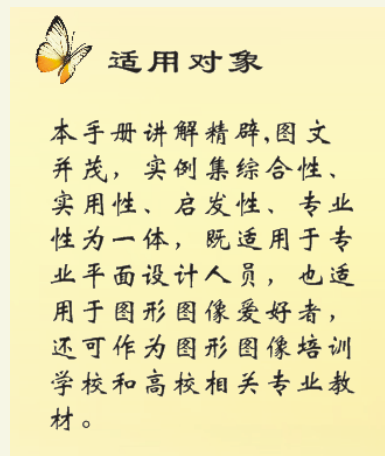 适用对象
本手册讲解精辟,图文
并茂，实例集综合性、
实用性、启发性、专业
性为一体，既适用于专
业平面设计人员，也适
用于图形图像爱好者，
还可作为图形图像培训
学校和高校相关专业教
材。